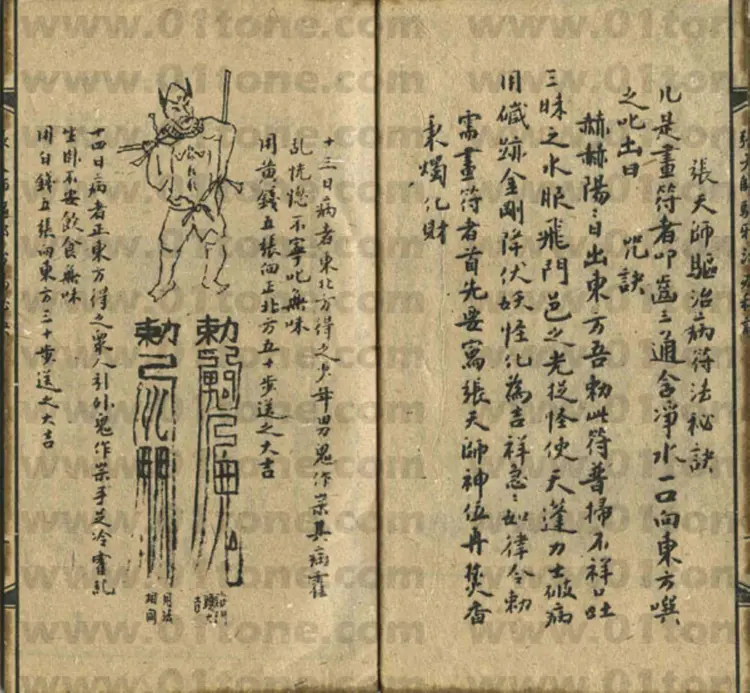 張天師驅治病符法秘訣
凡是畫符者叩齒三通含淨水一口向東方噀
之叱出曰 咒訣
赫赫陽:日出東方吾勅此符普掃不祥口吐
三昧之水眼飛門邑之光捉怪使天蓬力士破病
用穢跡金剛降伏妖怪化為吉祥急:如律令勅
需畫符者首先要寫張天師神位再焚香
秉燭化財
十三日病者東北方得之少年男鬼作祟其病霍
乱恍惚不寧吃無味
用黃錢五張向正北方五十步送之大吉
勅
勅
用法
相同
十四日病者正東方得之眾人引外鬼作祟手足冷霍乱
坐卧不安飲食無味
用白錢五張向東方三十步送之大吉
www.01tone.com